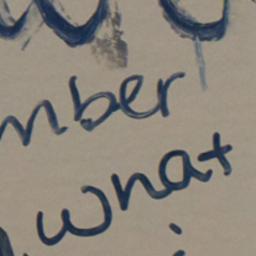 mber
what